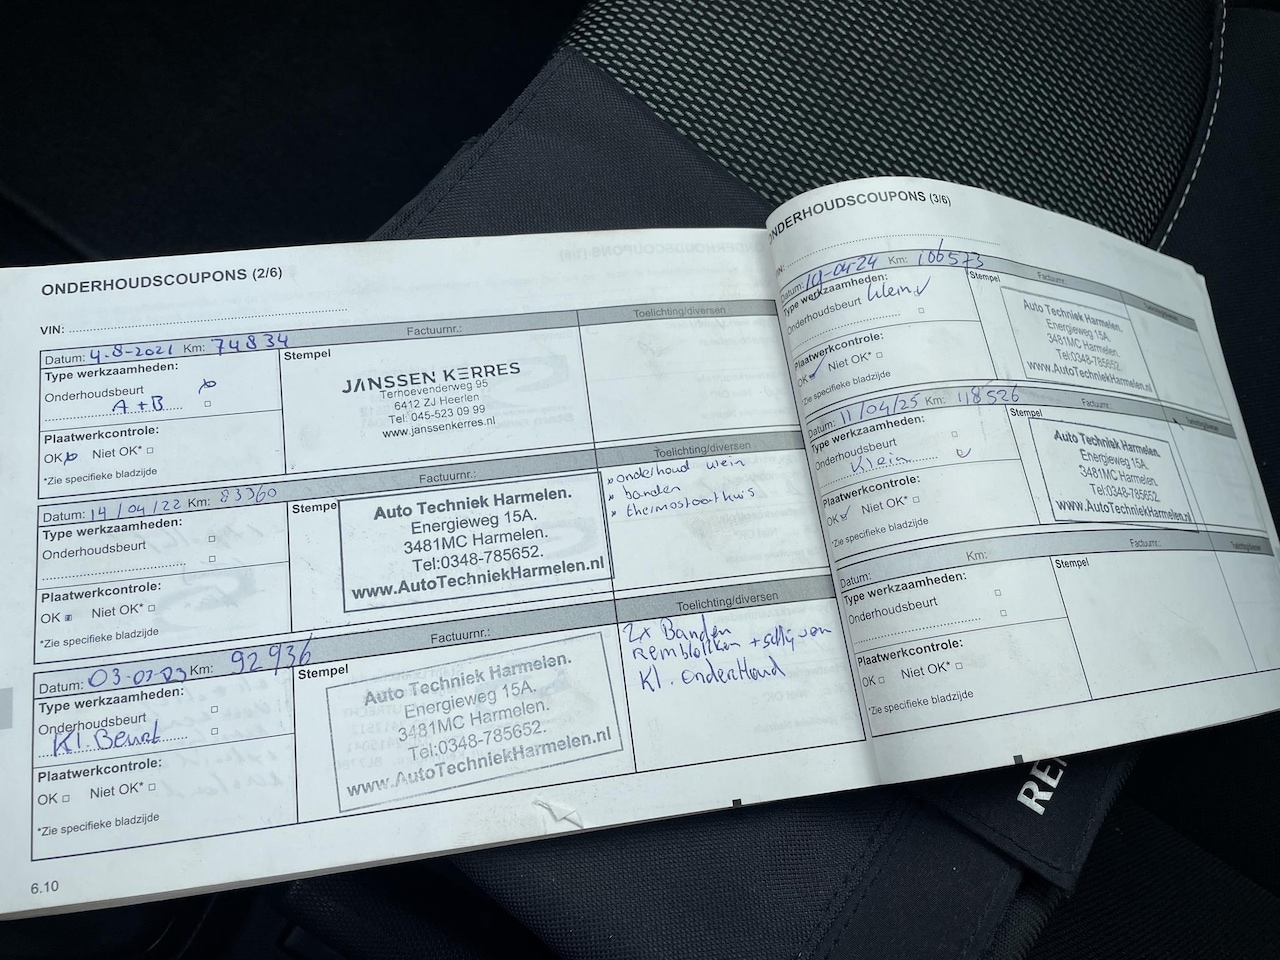 ONDERHOUDSCOUPONS (2/6)
VIN:
Datum: 4-8-2021 Km: 74834 Factuurnr.: Toelichting/diversen
Type werkzaamheden:
Onderhoudsbeurt
A+B
Plaatwerkcontrole:
OK Niet OK*
*Zie specifieke bladzijde
Stempel
JANSSEN KERRES
Terhoevenderweg 95
6412 ZJ Heerlen
Tel. 045-523 09 99
www.janssenkerres.nl
Datum: 14/04/22 Km: 83360 Factuurnr.: Toelichting/diversen
Type werkzaamheden:
Onderhoudsbeurt
Plaatwerkcontrole:
OK Niet OK*
*Zie specifieke bladzijde
Stempel
Auto Techniek Harmelen.
Energieweg 15A.
3481MC Harmelen.
Tel:0348-785652.
www.AutoTechniekHarmelen.nl
onderhoud klein
banden
thermostaathuis
Datum: Km: 92936 Factuurnr.: Toelichting/diversen
Type werkzaamheden:
Onderhoudsbeurt
Kl. Beurt
Plaatwerkcontrole:
OK Niet OK*
*Zie specifieke bladzijde
Stempel
Auto Techniek Harmelen.
Energieweg 15A.
3481MC Harmelen.
Tel:0348-785652.
www.AutoTechniekHarmelen.nl
2x Banden
Remblokken + schijven
Kl. onderhoud
6.10
ONDERHOUDSCOUPONS (3/6)
Datum: Km: 106573 Factuurnr.:
Type werkzaamheden:
Onderhoudsbeurt klein
Plaatwerkcontrole:
OK Niet OK*
*Zie specifieke bladzijde
Stempel
Auto Techniek Harmelen.
Energieweg 15A.
3481MC Harmelen.
Tel:0348-785652.
www.AutoTechniekHarmelen.nl
Datum: 11/04/25 Km: 118526 Factuurnr.: Toelichting/diversen
Type werkzaamheden:
Onderhoudsbeurt
Klein
Plaatwerkcontrole:
OK Niet OK*
*Zie specifieke bladzijde
Stempel
Auto Techniek Harmelen.
Energieweg 15A.
3481MC Harmelen.
Tel:0348-785652.
www.AutoTechniekHarmelen.nl
Datum: Km: Factuurnr.: Toelichting/diversen
Type werkzaamheden:
Onderhoudsbeurt
Plaatwerkcontrole:
OK Niet OK*
*Zie specifieke bladzijde
Stempel